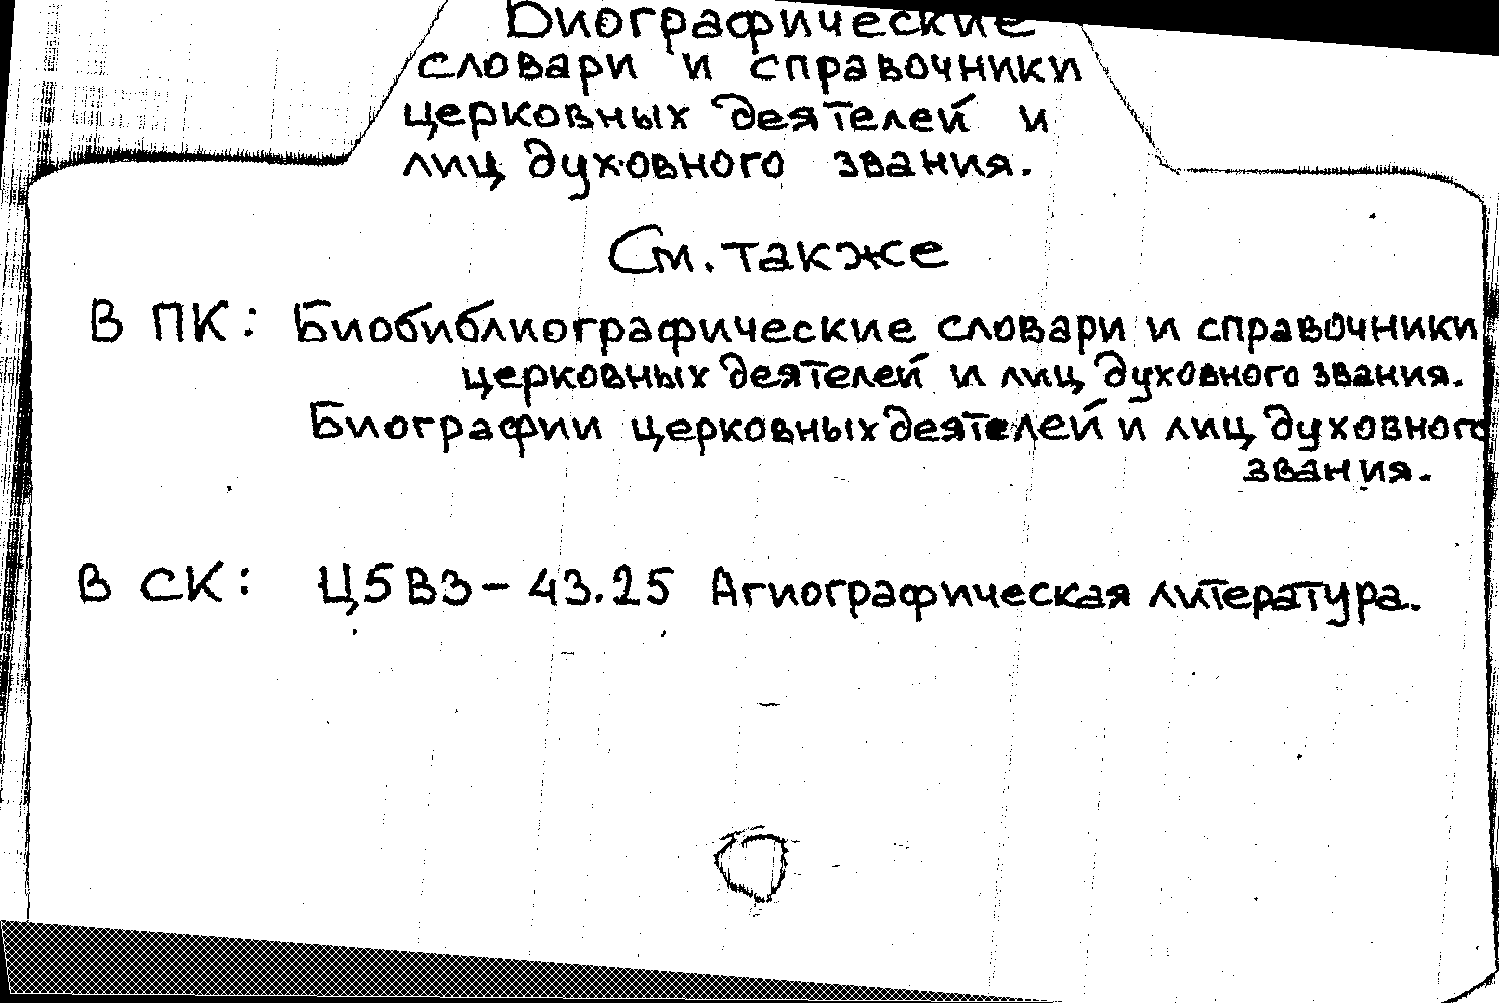 Биографические
словари и справочники
церковных деятелей и
лиц духовного звания.
См. также
В ПК: Биобиблиографические словари и справочники
церковных деятелей и лиц духовного звания.
Биографии церковных деятелей и лиц духовного
звания.
В СК: Ц5В3-43.25 Агиографическая литература.